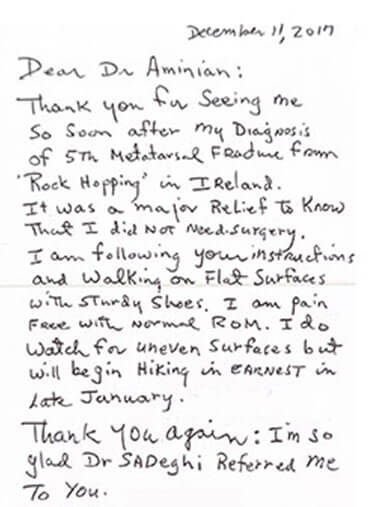 December 11, 2017
Dear Dr Aminian:
Thank you for Seeing me
So Soon after my Diagnosis
of 5th Metatarsal Fracture from
'Rock Hopping' in Ireland.
It was a major Relief to Know
That I did Not Need Surgery.
I am following your instructions
and Walking on Flat Surfaces
with Sturdy Shoes. I am pain
Free with Normal ROM. I do
Watch for uneven Surfaces but
will begin Hiking in EARNEST in
Late January.
Thank You again: I'm so
glad Dr SADeghi Referred Me
To You.